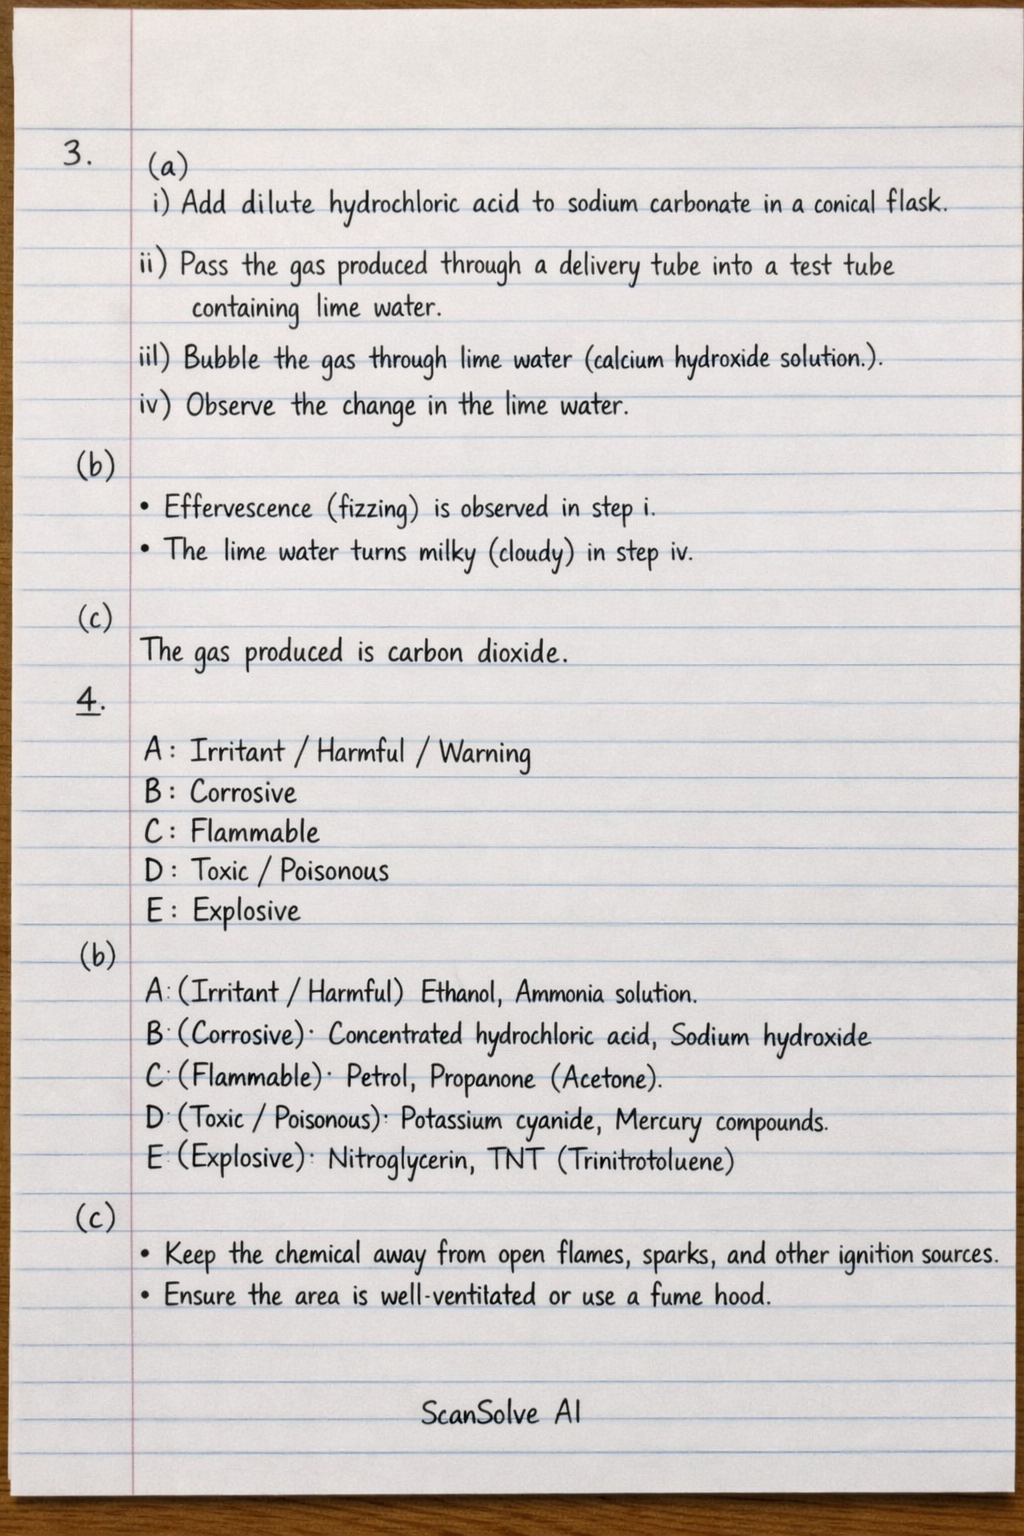 3.
(a)
i) Add dilute hydrochloric acid to sodium carbonate in a conical flask.
ii) Pass the gas produced through a delivery tube into a test tube
containing lime water.
iil) Bubble the gas through lime water (calcium hydroxide solution.).
iv) Observe the change in the lime water.
(b)
• Effervescence (fizzing) is observed in step i.
• The lime water turns milky (cloudy) in step iv.
(c)
The gas produced is carbon dioxide.
4.
A: Irritant / Harmful / Warning
B: Corrosive
C: Flammable
D: Toxic / Poisonous
E: Explosive
(b)
A: (Irritant / Harmful) Ethanol, Ammonia solution.
B: (Corrosive): Concentrated hydrochloric acid, Sodium hydroxide
C: (Flammable): Petrol, Propanone (Acetone).
D: (Toxic / Poisonous): Potassium cyanide, Mercury compounds.
E: (Explosive): Nitroglycerin, TNT (Trinitrotoluene)
(c)
• Keep the chemical away from open flames, sparks, and other ignition sources.
• Ensure the area is well-ventilated or use a fume hood.
ScanSolve AI